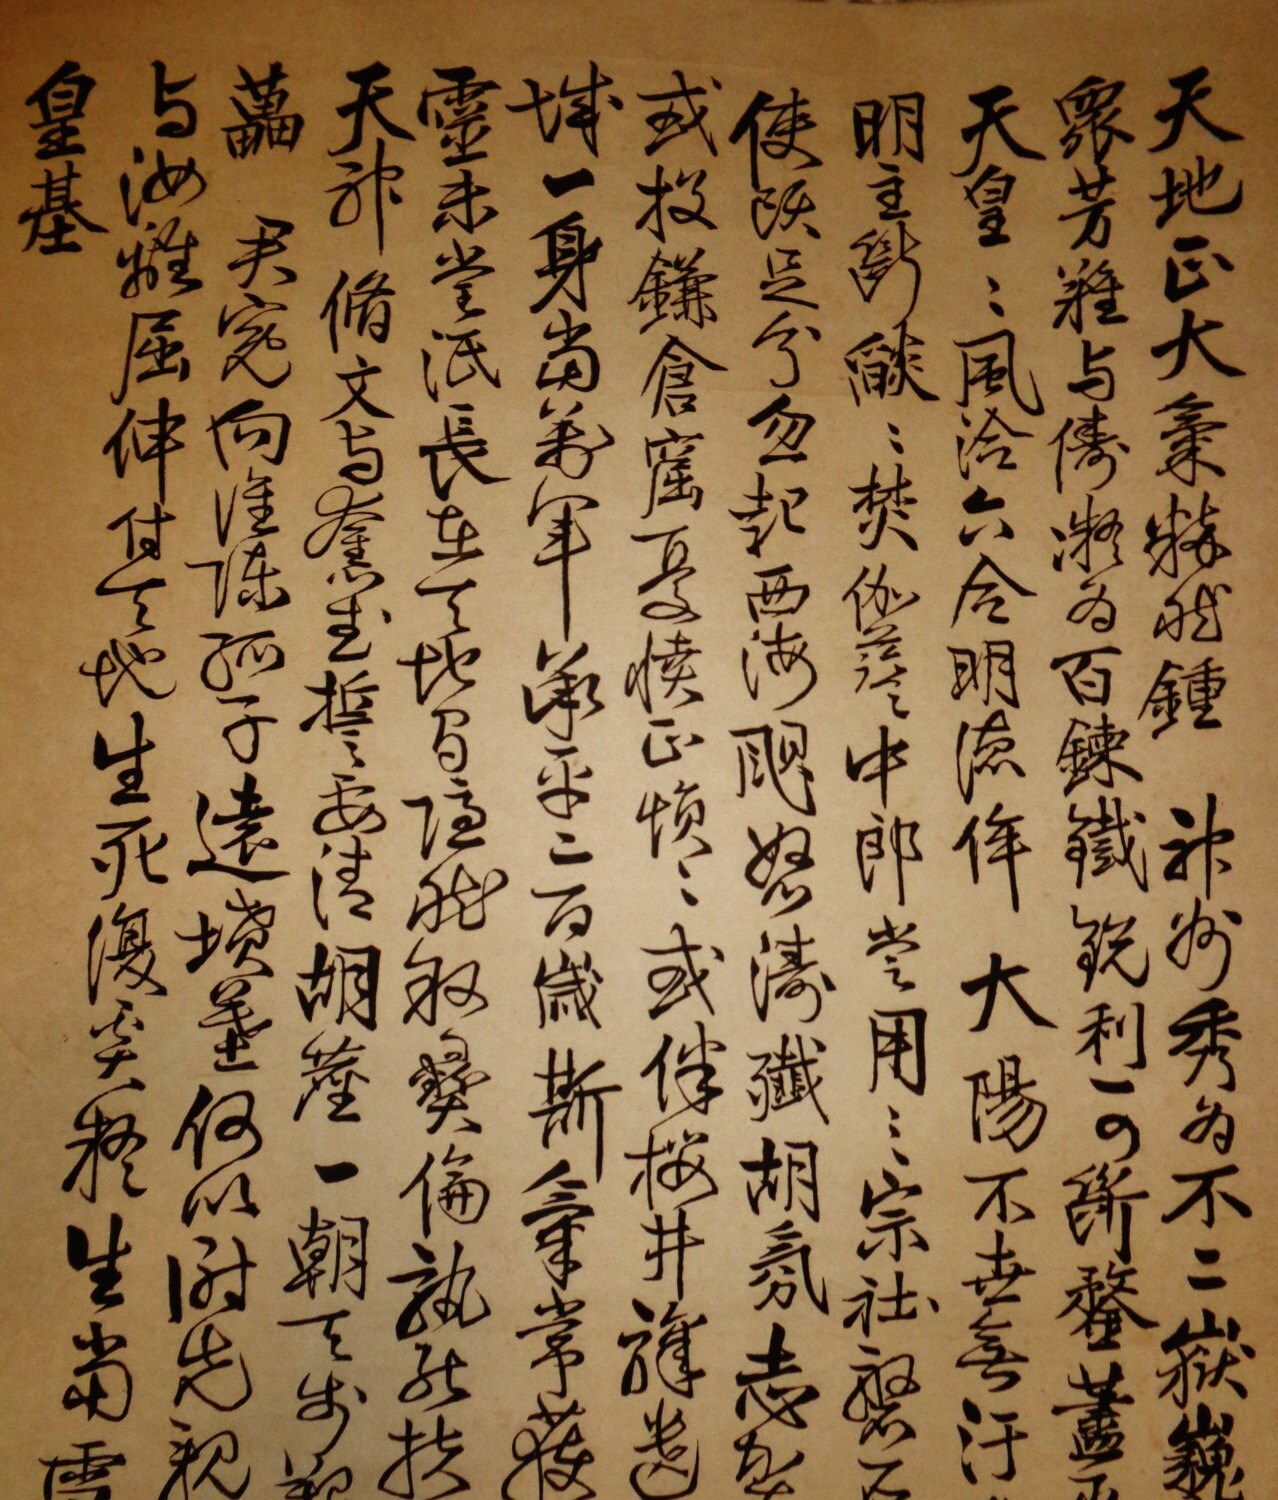 天地正大氣粹然鍾神州秀為不二嶽巍
衆芳難与儔凝為百錬鐵鋭利可斷鍪藎
天皇〻風洽六合明徳侔大陽不世無汙
明主斷燄〻焚伽藍中郎嘗用之宗社磐石
使頭足分忽起西海颶怒濤殲胡氛志賀
或投鎌倉窟憂憤正愪〻或伴櫻井驛遺
城一身當萬軍承平二百歳斯氣常獲
靈未嘗泯長在天地間隠然叙彝倫孰能扶
天神脩文与奮武誓要清胡塵一朝天歩
藟君冤向誰陳孤子遠墳墓何以謝先親
与汝離屈伸付天地生死復奚疑生當雪
皇基